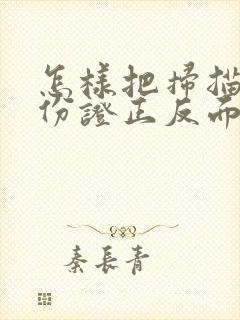 怎樣把掃描
份證正反面
秦長青